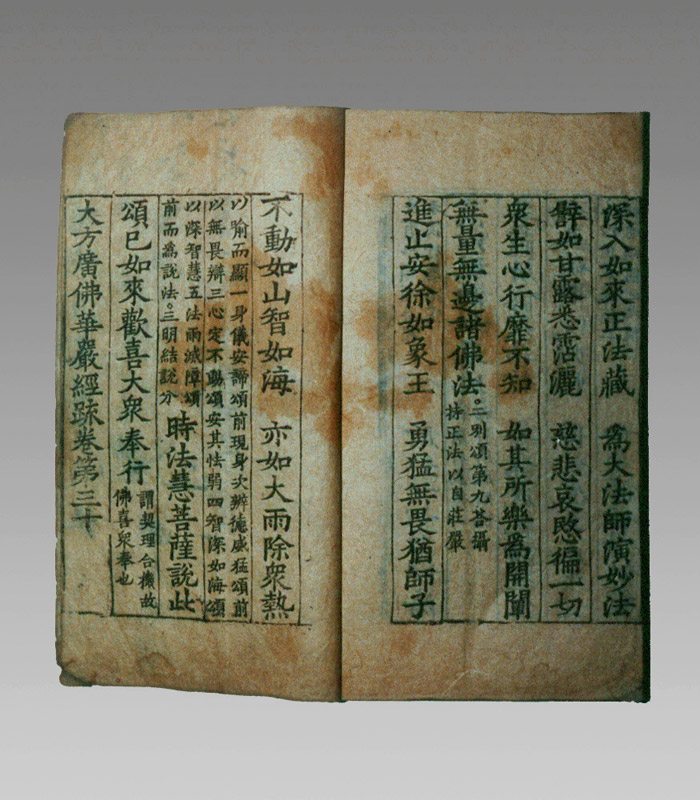 深入如來正法藏　為大法師演妙法
辟如甘露悉霑灑　慈悲哀愍徧一切
衆生心行靡不知　如其所樂為開闡
無量無邊諸佛法。二別頌第九荅攝
持正法以自莊嚴
進止安徐如象王　勇猛無畏猶師子
不動如山智如海　亦如大雨除衆熱
以喻而顯一身儀安諦頌前現身次辨德威猛頌前
以無畏辯三心定不動頌安其怯弱四智深如海頌
以深智慧五法雨滅障頌
前而爲說法。三明結說分　時法慧菩薩說此
頌已如來歡喜大衆奉行　謂契理合機故
佛喜衆奉也
大方廣佛華嚴經䟽卷第三十